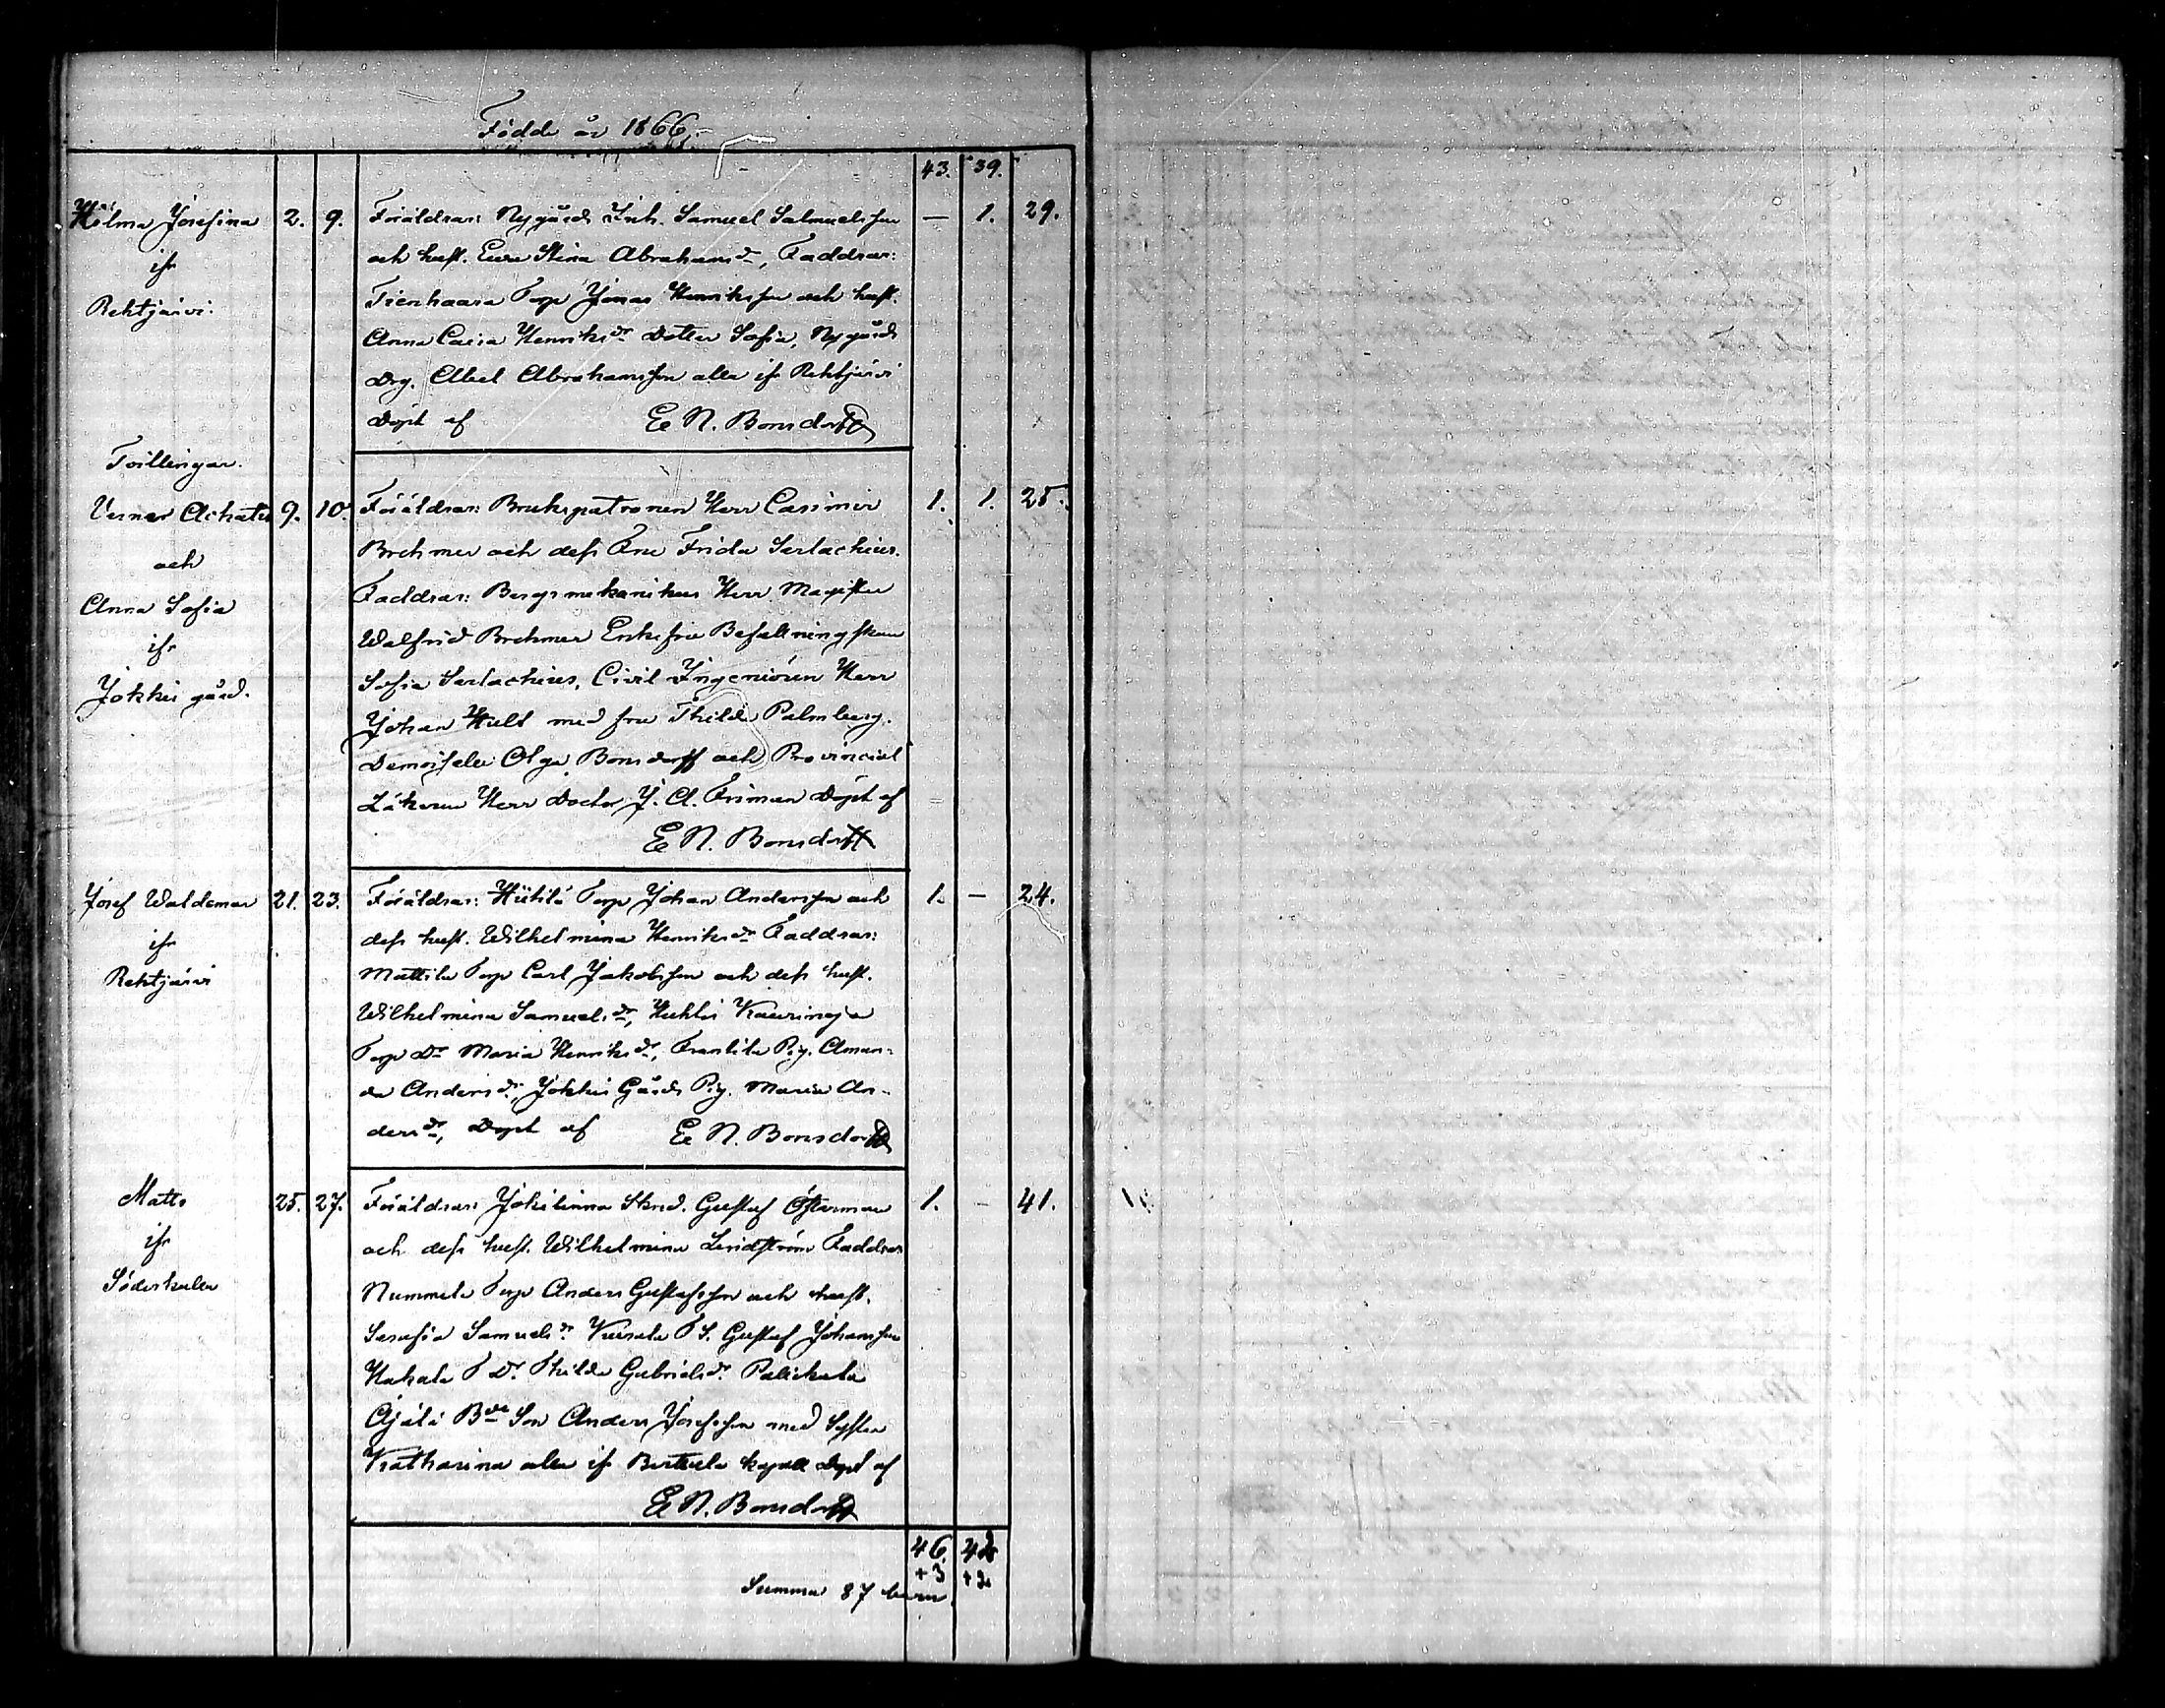 Födde år 1866.
43. 39.
Hilma Josefina 2. 9. Föräldrar: Nygårds Inh. Samuel Salmuelsson — 1. 29.
ifr och hust. Eva Stina Abrahamsdr, Faddrar:
Rehtijärvi. Tienhaara Torp Jonas Henriksson och hust.
Anna Caisa Henriksdr Dotter Sofia, Nygårds
Drg. Abel Abrahamsson alla ifr Rehtijärvi
Döpt af E N. Bonsdorff
Tvillingar.
Verner Achates 9. 10. Föräldrar: Brukspatronen Herr Casimir 1. 1. 25.
och Brehmer och dess Fru Frida Serlachius.
Anna Sofia Faddrar: Bergsmekanikus Herr Magister
ifr Walfrid Brehmer Enkefru Befallningsskan
Jokkis gård. Sofia Serlachius, Civil Ingeniören Herr
Johan Hult med fru Thilda Palmberg.
Demoiselle Olga Bonsdorff och Provincial
Läkaren Herr Doctor J. A. Friman Döpt af
E N. Bonsdorff
Josef Waldemar 21. 23. Föräldrar: Torp Johan Andersson och 1. — 24.
ifr dess hust. Wilhelmina Henriksdr Faddrar:
Rehtijärvi Mattila Torp Carl Jakobsson och dess hust.
Wilhelmina Samuelsdr,
Torp Dr Maria Henriksdr, Frantila Pig. Aman-
da Andersdr, Jokkis Gårds Pig. Maria An-
dersdr, Döpt af E N. Bonsdorff
Matts 25. 27. Föräldrar: Jokilinna Skred. Gustaf Österman 1. — 41.
ifr och dess hust. Wilhelmina Lindström Faddrar
Söderkulla Nummela Torp Anders Gustafsson och hust.
Serafia Samuelsdr T S. Gustaf Johansson
T Dr Thilda Gabrielsdr
Son Anders Josefsson med Syster
Katharina alla ifr kapell Döpt af
E N. Bonsdorff
46. 42
+3 +2
Summa 87 barn